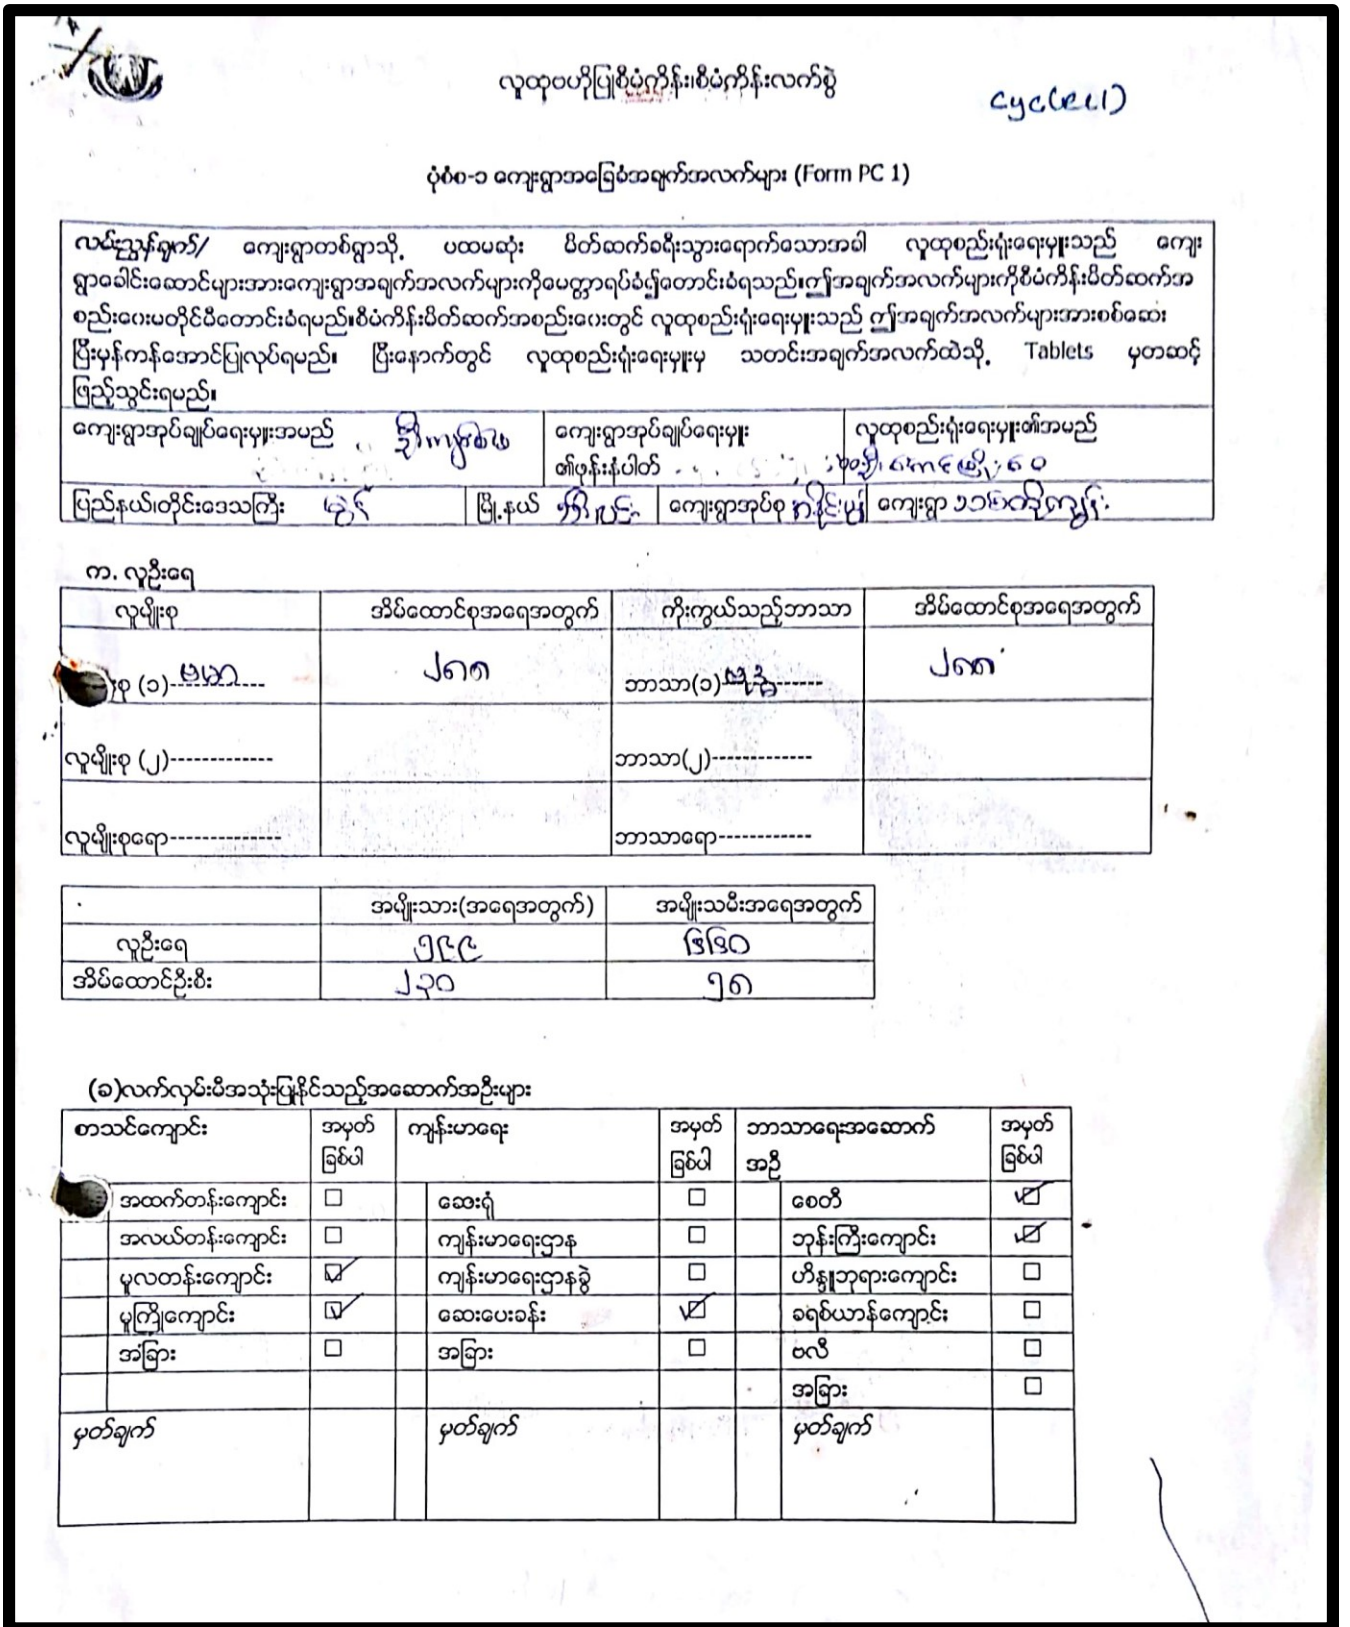 လူထုဗဟိုပြုစီမံကိန်း၊စီမံကိန်းလက်စွဲ
Cycle(1)
ပုံစံစ-၁ ကျေးရွာအခြေခံအချက်အလက်များ (Form PC 1)
လမ်းညွှန်ချက်/ ကျေးရွာတစ်ရွာသို့ ပထမဆုံး မိတ်ဆက်ခရီးသွားရောက်သောအခါ လူထုစည်းရုံးရေးမှူးသည် ကျေး
ရွာခေါင်းဆောင်များအားကျေးရွာအချက်အလက်များကိုမေတ္တာရပ်ခံ၍တောင်းခံရသည်။ဤအချက်အလက်များကိုစီမံကိန်းမိတ်ဆက်အ
စည်းဝေးမတိုင်မီတောင်းခံရမည်။စီမံကိန်းမိတ်ဆက်အစည်းဝေးတွင် လူထုစည်းရုံးရေးမှူးသည် ဤအချက်အလက်များအားစစ်ဆေး
ပြီးမှန်ကန်အောင်ပြုလုပ်ရမည်။ ပြီးနောက်တွင် လူထုစည်းရုံးရေးမှူးမှ သတင်းအချက်အလက်ထဲသို့ Tablets မှတဆင့်
ဖြည့်သွင်းရမည်။
ကျေးရွာအုပ်ချုပ်ရေးမှူးအမည် ကျေးရွာအုပ်ချုပ်ရေးမှူး လူထုစည်းရုံးရေးမှူး၏အမည်
၏ဖုန်းနံပါတ်
ပြည်နယ်၊တိုင်းဒေသကြီး မြို့နယ် ကျေးရွာအုပ်စု ကျေးရွာ
က. လူဦးရေ
လူမျိုးစု အိမ်ထောင်စုအရေအတွက် ကိုးကွယ်သည့်ဘာသာ အိမ်ထောင်စုအရေအတွက်
စု (၁) ဗမာ ၂၈၈ ဘာသာ(၁) ဗုဒ္ဓ ၂၈၈
လူမျိုးစု (၂)------------- ဘာသာ(၂)------------
လူမျိုးစုရော-------------- ဘာသာရော------------
အမျိုးသား(အရေအတွက်) အမျိုးသမီးအရေအတွက်
လူဦးရေ ၅၉၉ ၆၆၀
အိမ်ထောင်ဦးစီး ၂၃၀ ၅၈
(ခ)လက်လှမ်းမီအသုံးပြုနိုင်သည့်အဆောက်အဦးများ
စာသင်ကျောင်း အမှတ် ကျန်းမာရေး အမှတ် ဘာသာရေးအဆောက် အမှတ်
ခြစ်ပါ ခြစ်ပါ အဦ ခြစ်ပါ
အထက်တန်းကျောင်း ☐ ဆေးရုံ ☐ စေတီ ☑
အလယ်တန်းကျောင်း ☐ ကျန်းမာရေးဌာန ☐ ဘုန်းကြီးကျောင်း ☑
မူလတန်းကျောင်း ☑ ကျန်းမာရေးဌာနခွဲ ☐ ဟိန္ဒူဘုရားကျောင်း ☐
မူကြိုကျောင်း ☑ ဆေးပေးခန်း ☑ ခရစ်ယာန်ကျောင်း ☐
အခြား ☐ အခြား ☐ ဗလီ ☐
အခြား ☐
မှတ်ချက် မှတ်ချက် မှတ်ချက်